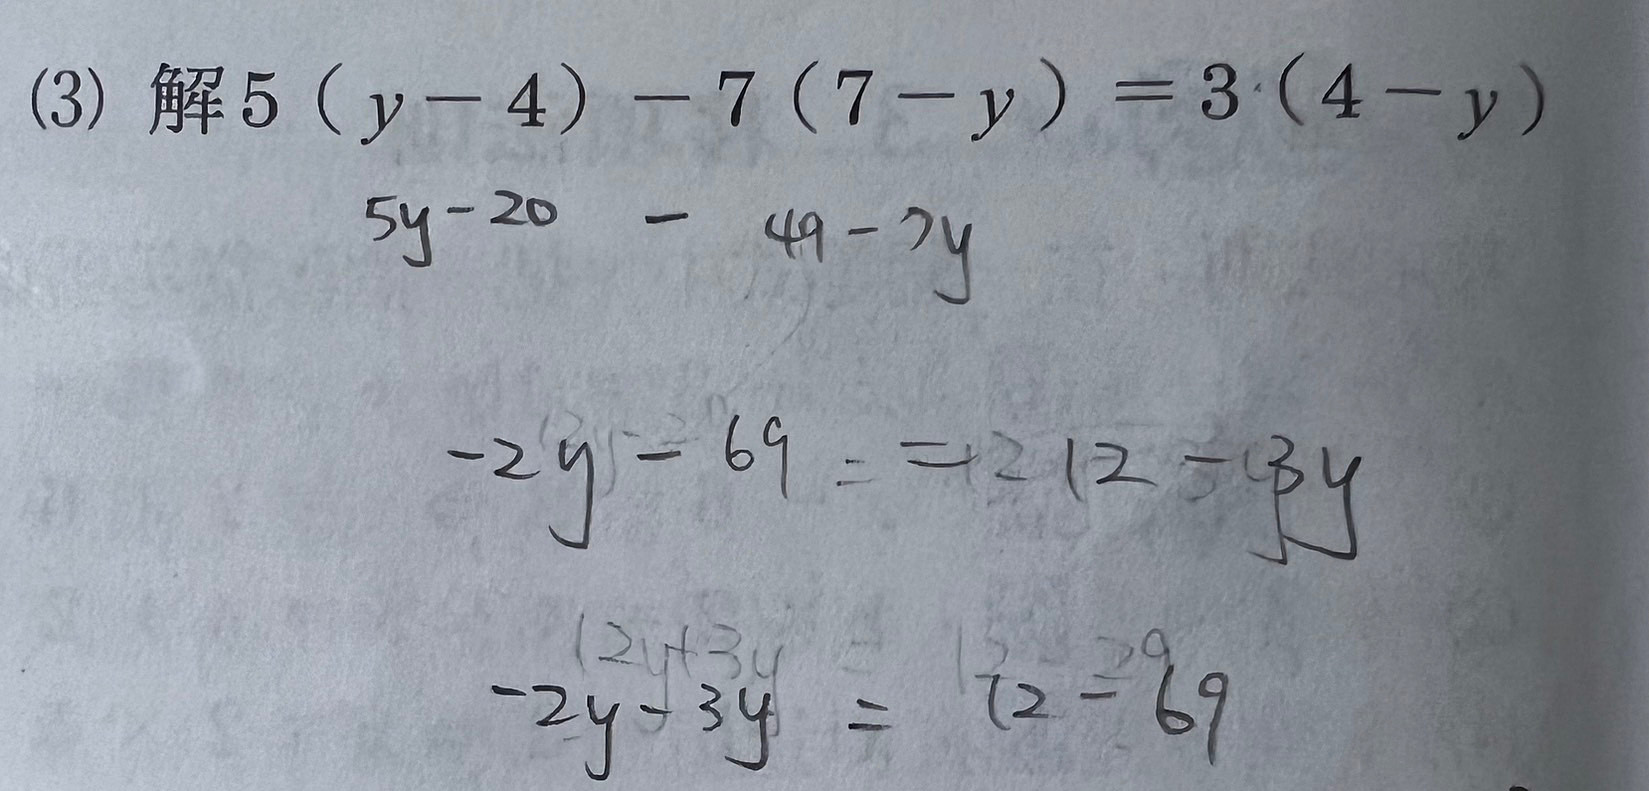 (3) 解5(y－4)－7(7－y)＝3(4－y)
5y-20 - 49-7y
-2y-69 = =12-3y
12y+3y = 12-29
-2y-3y = 12-69